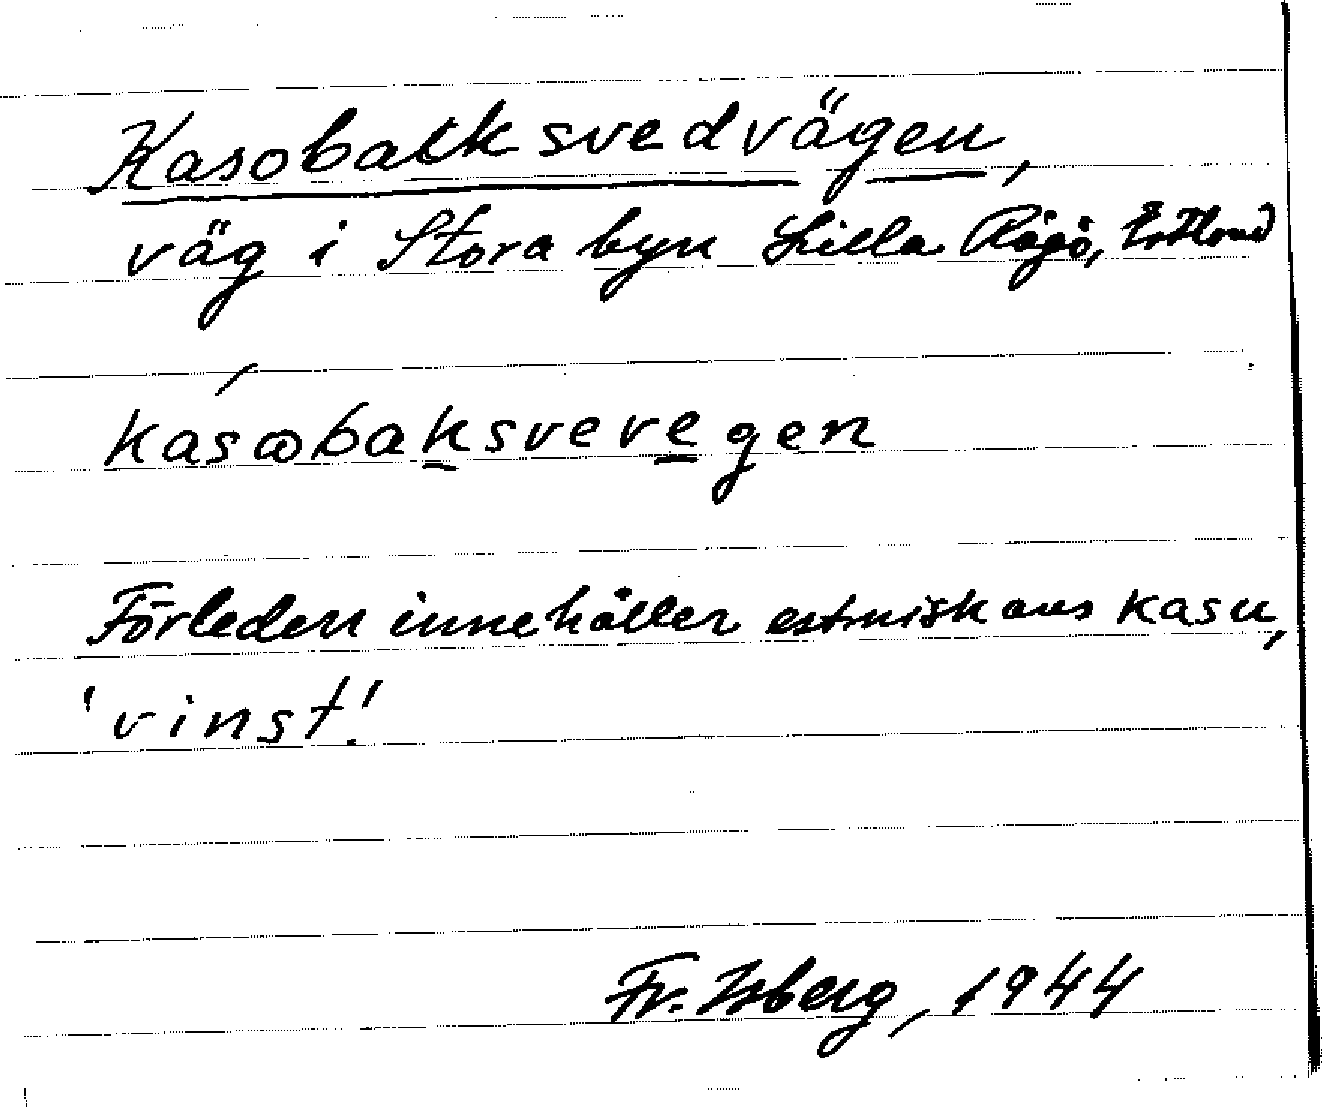 Kasobackksvedvägen,
väg i Stora byn Lilla Rågö, Estland
kasωbaksvevegen
Förleden innehåller estniskans kasu,
'vinst'.
Fr. Isberg, 1944